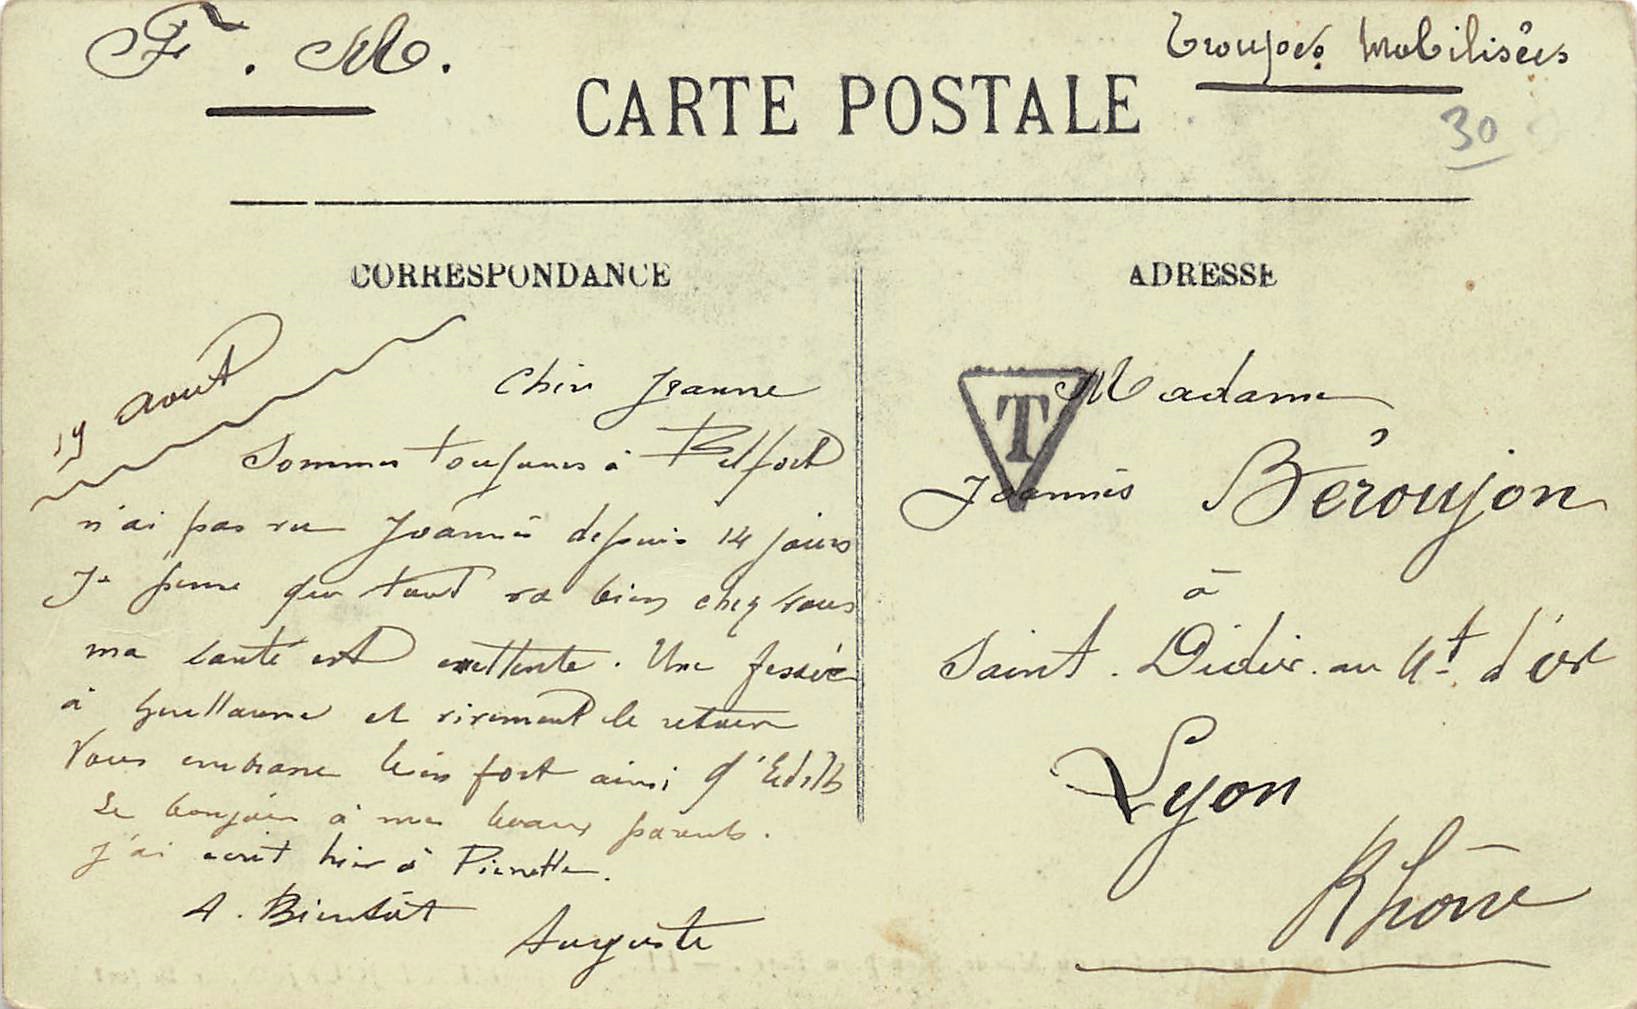 F. M.
Troupes mobilisées
30
CARTE POSTALE
CORRESPONDANCE
ADRESSE
19 aout
Chère Jeanne
Sommes toujours à Belfort
n'ai pas vu Joannès depuis 14 jours
Je pense que tout va bien chez vous
ma santé est excellente. Une fessée
à Guillaume et vivement le retour
Vous embrasse bien fort ainsi q'Edith
Le bonjour à mes beaux parents.
J'ai écrit hier à Pierrette.
A. Bientôt
Auguste
T
Madame
Joannès Béroujon
à
Saint. Didier. au Mt. d'or
Lyon
Rhône